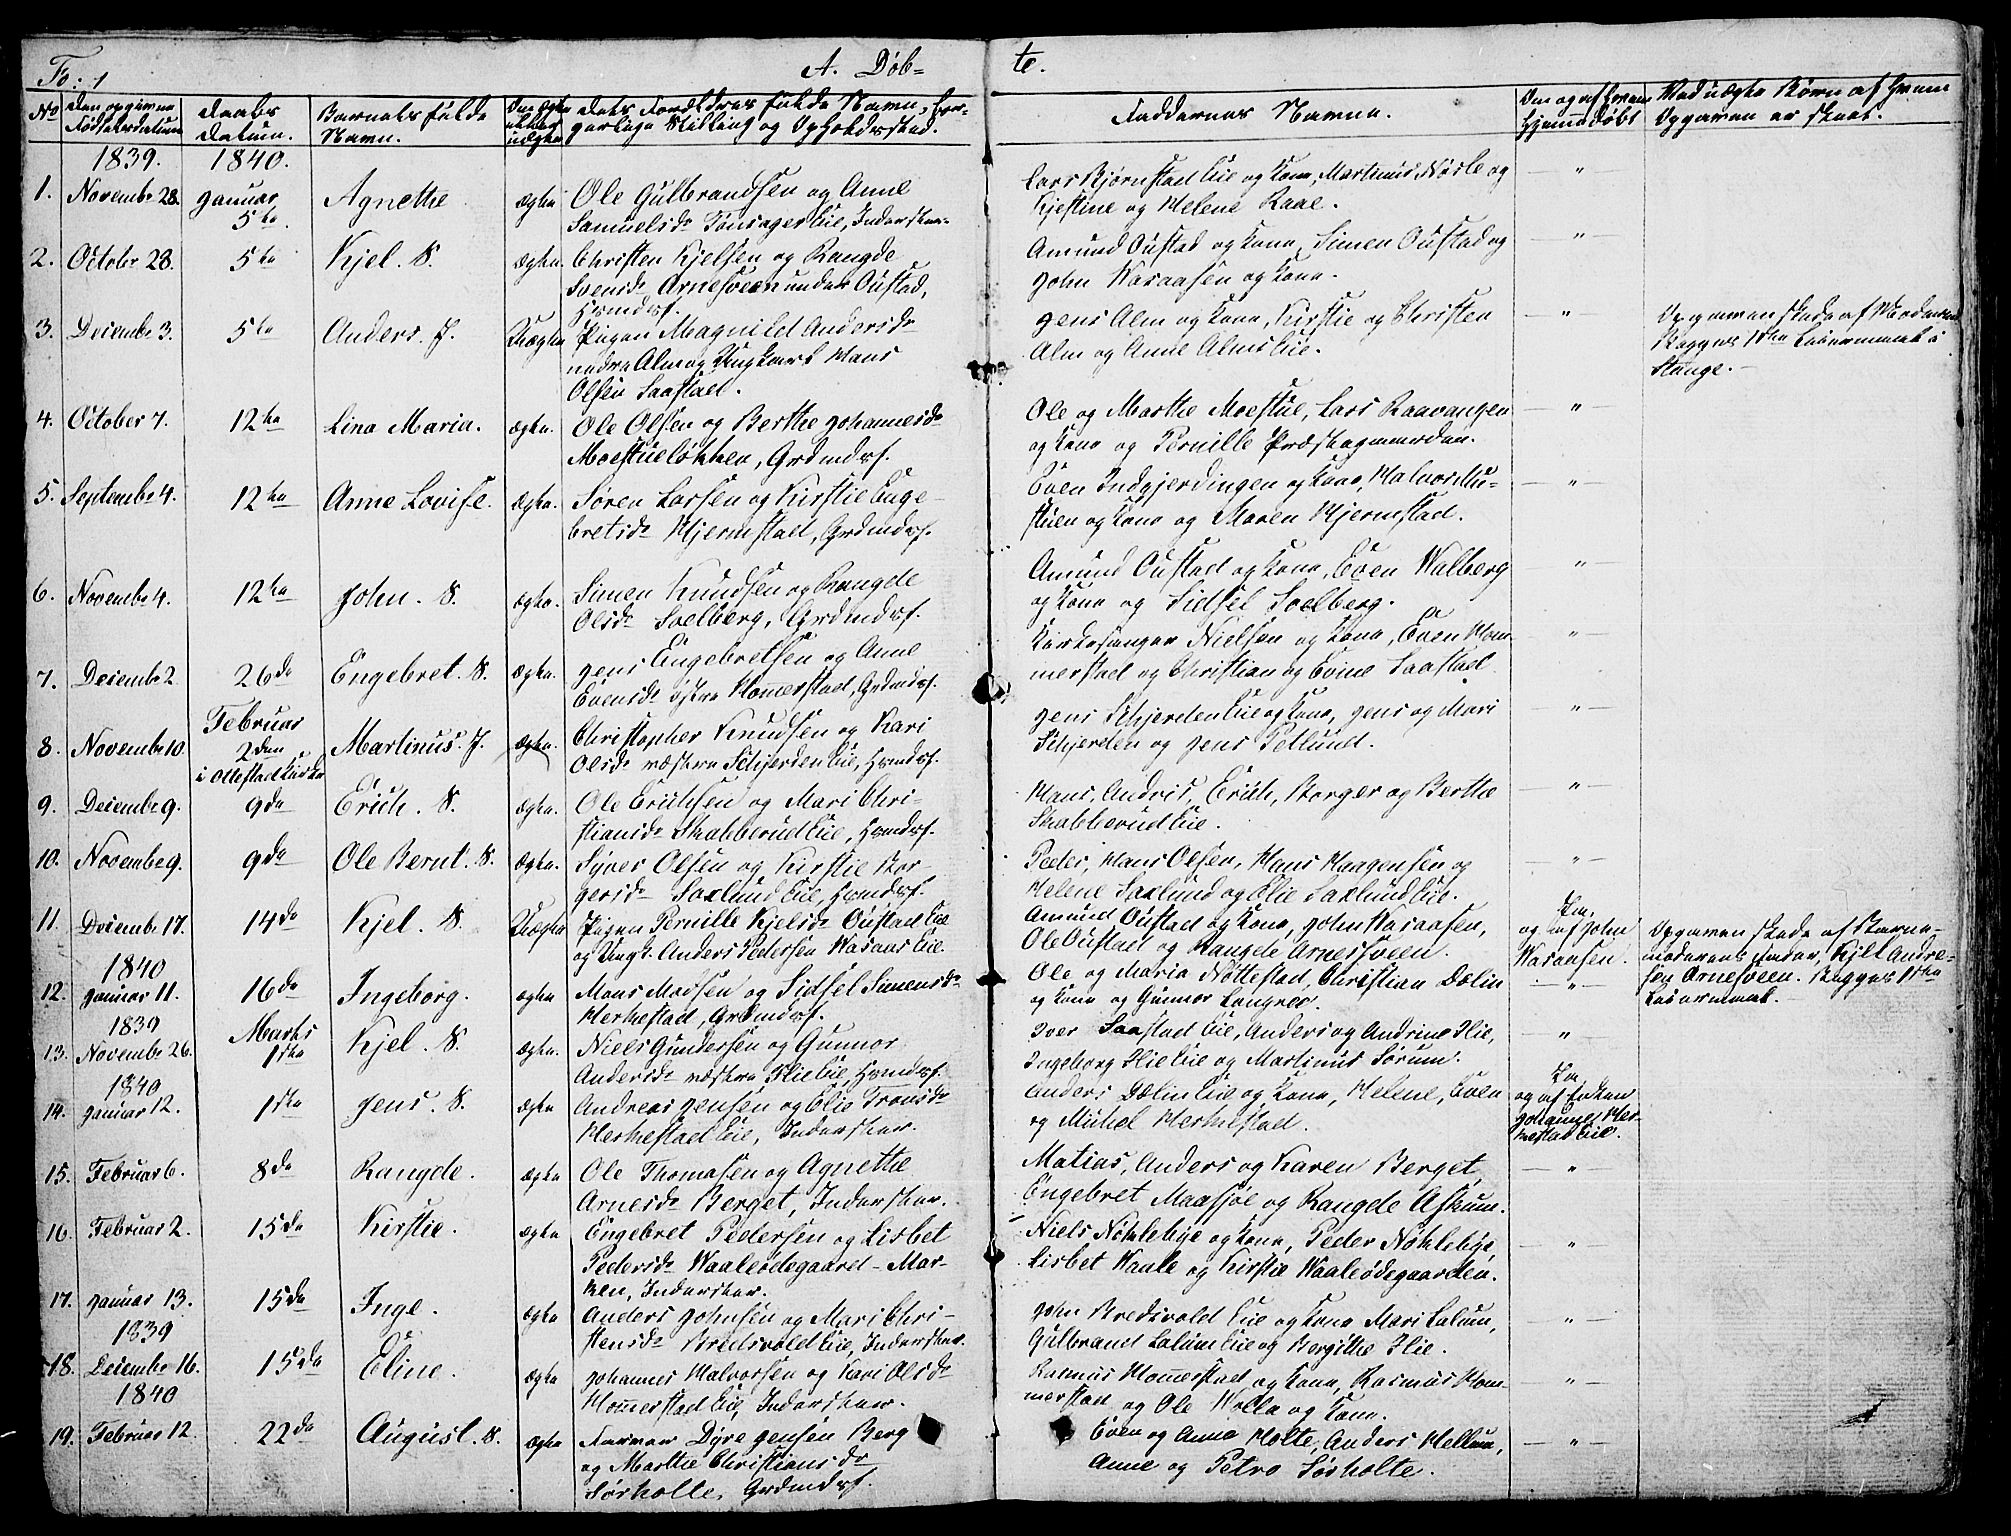 Fo: 1
A. Døb=
te.
No
Den opgivne Fødselsdatum
Daabs Datum.
Barnets fulde Navn.
Om ægte eller uægte
Dets Forældres fulde Navne, borgerlige Stilling og Opholdssted.
Faddernes Navne.
Om og af hvem hjemmedøbt
Ved uægte Børn af hvem Opgaven er skeet.
1839. 1840.
1. Novembr 28. Januar 5te. Agnethe. ægte
Ole Gulbrandsen og Anne
Samuelsdr Tonsager Eie, Inderster.
Lars Bjørnstad Eie og Kone, Martinus Nøsle og
Kjestine og Helene Raae.
2. Octobr 28. 5te Kjel. S. ægte.
Christen Kjelsen og Rangde
Svensdr Arnesveen under Oustad,
Hvmdsf.
Amund Oustad og Kone, Simen Oustad og
John Vasaasen og Kone.
3. Decembr 3. 5te Anders. J. Uægte
Pigen Magnild Andersdr
nedre Alm og Ungkarl Hans
Olsen Saastad.
Jens Alm og Kone, Kirstie og Christen
Alm og Anne Almseie.
Opgaven skede af Moderen
Begges 1ste Leiermaal i
Stange.
4. October 7. 12te Lina Maria. ægte.
Ole Olsen og Berthe Johannesdr
Moestueløkken, Grdmdsf.
Ole og Marthe Moestue, Lars Raavangen
og Kone og Pernille Præstegaarden.
5. Septembr 4. 12te Anne Lovise. ægte.
Søren Larsen og Kirstie Enge-
bretsdr Hjermstad, Grdmdsf.
Even Indgjerdingen og Kone, Halvor Mu-
stuen og Kone og Maren Hjermstad.
6. Novembr 4. 12te John. S. ægte.
Simen Knudsen og Rangde
Olsdr Soelberg, Grdmdsf.
Amund Oustad og Kone, Even Walberg
og Kone og Sidsel Soelberg.
7. Decembr 2. 26de Engebret. S. ægte.
Jens Engebretsen og Anne
Evensdr østre Hommerstad, Grdmdsf.
Kirkesanger Nielsen og Kone, Even Hom-
merstad og Christian og Evine Saastad.
8. Novembr 10. Februar 2den i Ottestad Kirke Martinus. J. ægte.
Christopher Knudsen og Kari
Olsdr vestre Schjerden Eie, Hvmdsf.
Jens Schjerden Eie og Kone, Jens og Mari
Schjerden og Jens Tellund.
9. Decembr 9. 9de Erich. S. ægte.
Ole Erichsen og Mari Chri-
stiansdr Skabberud Eie, Hvmdsf.
Hans, Andris, Erich, Borger og Berthe
Skabberud Eie.
10. Novembr 9. 9de Ole Bernt. S. ægte.
Syver Olsen og Kirstie Bor-
gersdr Saxlund Eie, Hvmdsf.
Peder, Hans Olsen, Hans Haagensen og
Helene Saxlund og Elie Saxlund Eie.
11. Decembr 17. 14de Kjel. S. Uægte
Pigen Pernille Kjelsdr Oustad Eie
og Ungk. Anders Pedersen Vasaas Eie.
Amund Oustad og Kone, John Vasaasen,
Ole Oustad og Rangde Arnesveen.
Jm. og af John
Vasaasen.
Opgaven skede af Barne-
moderens Fader, Kjell Andre-
sen Arnesveen. Begges 1ste
Leiermaal.
1840
12. Januar 11. 16de Ingeborg. ægte
Mons Madsen og Sidsel Simensdr
Herkestad, Grdmdsf.
Ole og Maria Nøttestad, Christian Dølin
og Kone og Gunnor Langred.
1839
13. Novembr 26. Marts 1ste Kjel. S. ægte.
Niels Gundersen og Gunnor
Andersdr vestre Ilie Eie, Hvmdsf.
Iver Saastad Eie, Anders og Andrine Ilie,
Ingeborg Ilie Eie og Martinus Sørum.
1840
14. Januar 12. 1ste Jens. S. ægte
Andreas Jensen og Elie Tronsdr
Herkestad Eie, Inderster.
Anders Dølin Eie og Kone, Helene, Even
og Mickel Herkestad.
og af Enken
Johanne Her-
kestad Eie.
15. Februar 6. 8de Rangde. ægte
Ole Thomasen og Agnethe
Arnesdr Berget, Inderster.
Matias, Anders og Karen Berget,
Engebret Maasjøe og Rangde Askum.
16. Februar 2. 15de Kirstie. ægte
Engebret Pedersen og Lisbet
Pedersdr Waaleødegaard-Mar-
ken, Inderster.
Niels Nøkleby og Kone, Peder Nøkleby,
Lisbet Waale og Kirstie Waaleødegaarden.
17. Januar 13. 15de Inge. ægte
Anders Johnsen og Mari Chri-
stensdr Bredsvold Eie, Inderster.
John Bredsvold Eie og Kone, Mari Lalum,
Gulbrand Lalum Eie og Bergithe Ilie.
1839
18. Decembr 16. 15de Eline. ægte
Johannes Halvorsen og Kari Olsdr
Hommerstad Eie, Inderster.
Rasmus Hommerstad og Kone, Rasmus Hom-
merstad og Ole Wolla og Kone.
1840
19. Februar 12. 22de August. S. ægte
Farver Dyre Jensen Berg
og Marthe Christiansdr
Sørholte, Grdmdsf.
Even og Anne Holte, Anders Hellum,
Anne og Petro Sørholte.